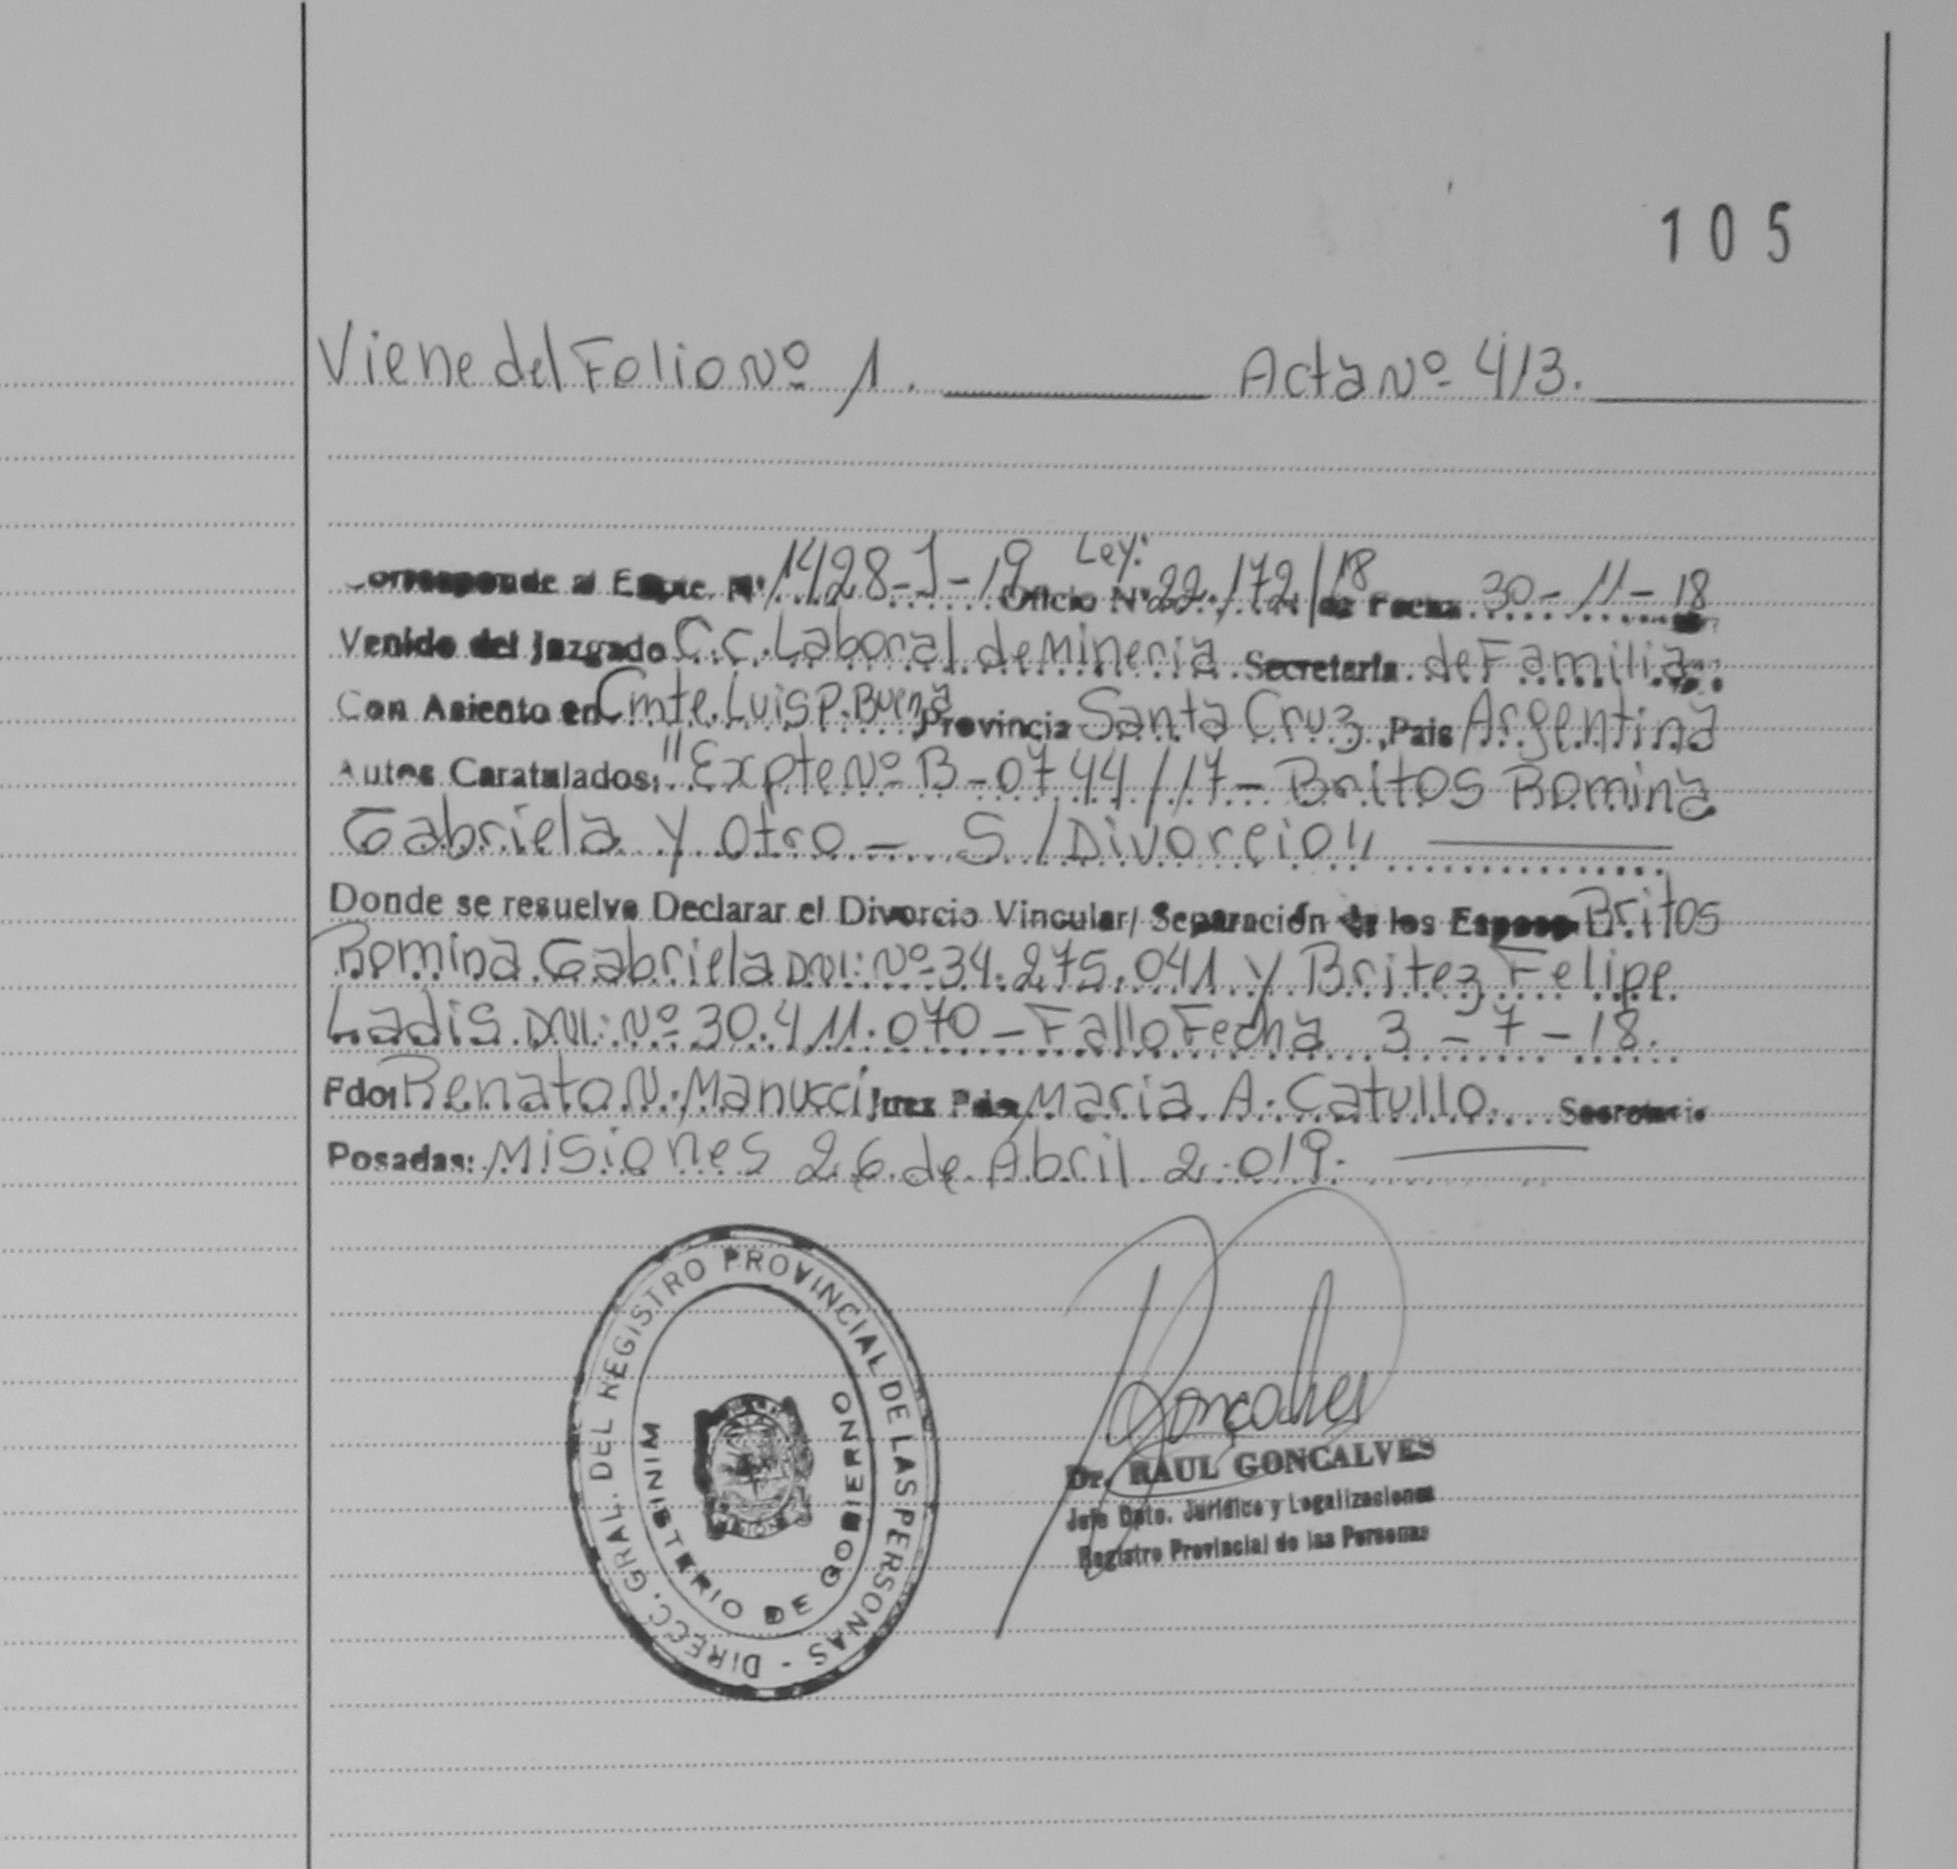 105
Viene del Folio Nº 1. Acta Nº 413.
Corresponde al Expte. Nº 1428-J-19 Ley: Oficio Nº 22.172/18 de Fecha 30-11-18
Venido del Juzgado C.C. Laboral de Mineria Secretaria de Familia
Con Asiento en Cmte. Luis P. Buena Provincia Santa Cruz, Pais Argentina
Autos Caratulados: "Expte Nº B-0744/17- Britos Romina
Gabriela y Otro - S/Divorcio"
Donde se resuelve Declarar el Divorcio Vincular/ Separación de los Esposos Britos
Romina Gabriela DNI: Nº 34.275.041 y Britez Felipe
Ladis DNI: Nº 30.411.070 - Fallo Fecha 3-7-18.
Fdo: Renato N. Manucci Juez Pdo: Maria A. Catullo Secretario
Posadas: Misiones 26 de Abril 2.019.
DIRECC. GRAL. DEL REGISTRO PROVINCIAL DE LAS PERSONAS -
MINISTERIO DE GOBIERNO
Goncalves
Dr. RAUL GONCALVES
Jefe Dpto. Jurídico y Legalizaciones
Registro Provincial de las Personas